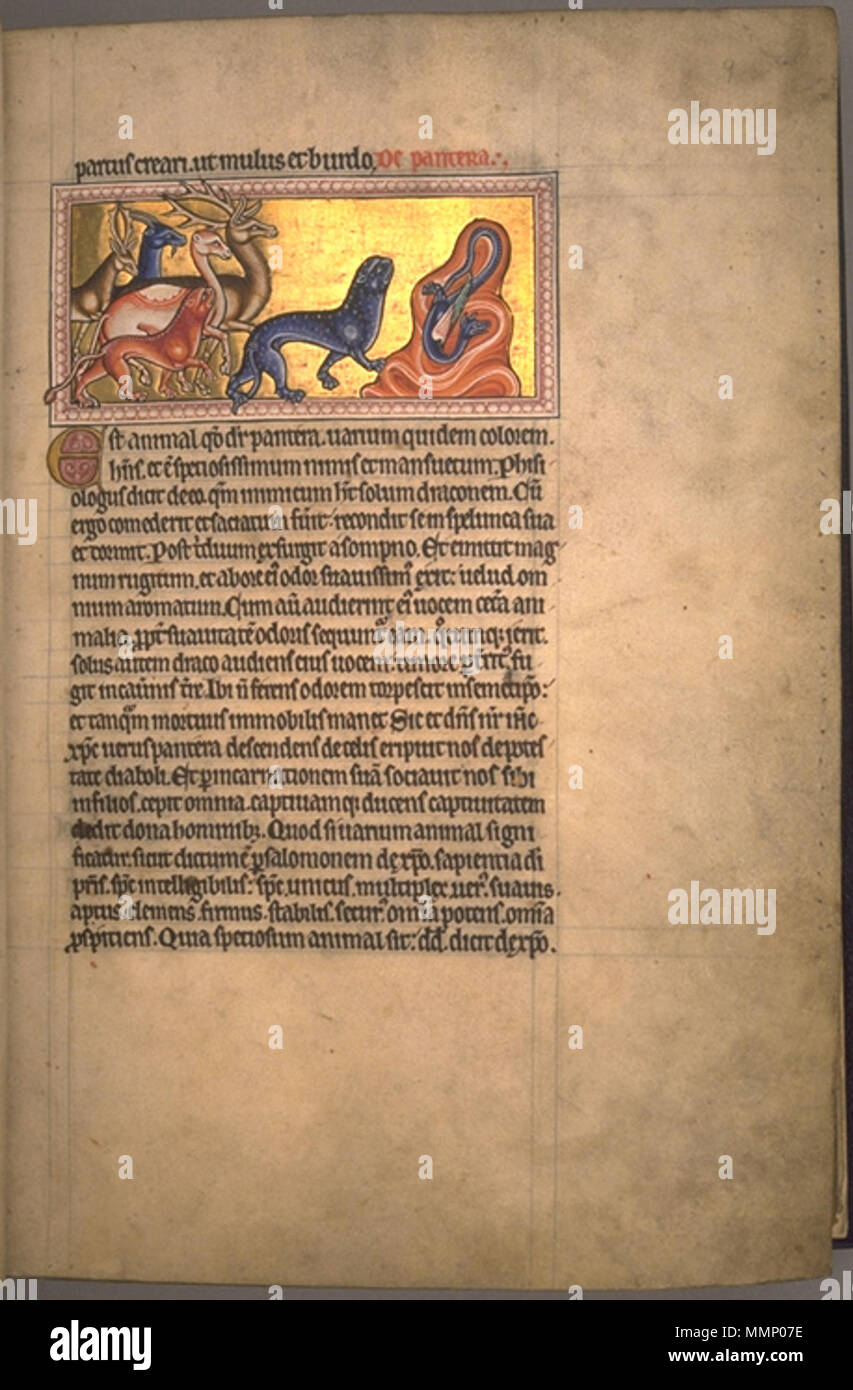 9
partus creari. ut mulus et burdo. De pantera.
Est animal qd dr pantera. uarium quidem colorem.
hns. et e speciosissimum nimis et mansuetum. Phisi
ologus dicit de eo. qm inimicum ht solum draconem. Cu
ergo comederit et saciatum fuit. recondit se in spelunca sua
et dormit. Post triduum exsurgit a sompno. Et emittit mag
num rugitum. et ab ore ei odor suauissim exit: uelud om
nium aromatum. Cum au audierint ei uocem cetera ani
malia. ppt suauitate odoris sequunt eam. quocunq; ierit.
solus autem draco audiens eius uocem. timore fu
git in cauernis tre. Ibi n ferens odorem torpescit in semetipso:
et tanqm mortuus immobilis manet. Sic et dns nr ihc
xpc uerus pantera descendens de celis eripuit nos de potes
tate diaboli. Et p incarnationem sua sociauit nos sibi
in filios. cepit omnia. captiuam q; ducens captiuitatem
dedit dona hominibz. Quod si uarium animal signi
ficatur. sicut dictum e p salomonem de xpo. sapientia di
pris. spc intelligibilis: spc. unicus. multiplex. uer. suauis.
aptus. clemens. firmus. stabilis. secur. omia potens. omia
pspiciens. Quia speciosum animal sit: dd. dicit de xpo.
alamy
a
alamy
Image ID: MMP07E
www.alamy.com